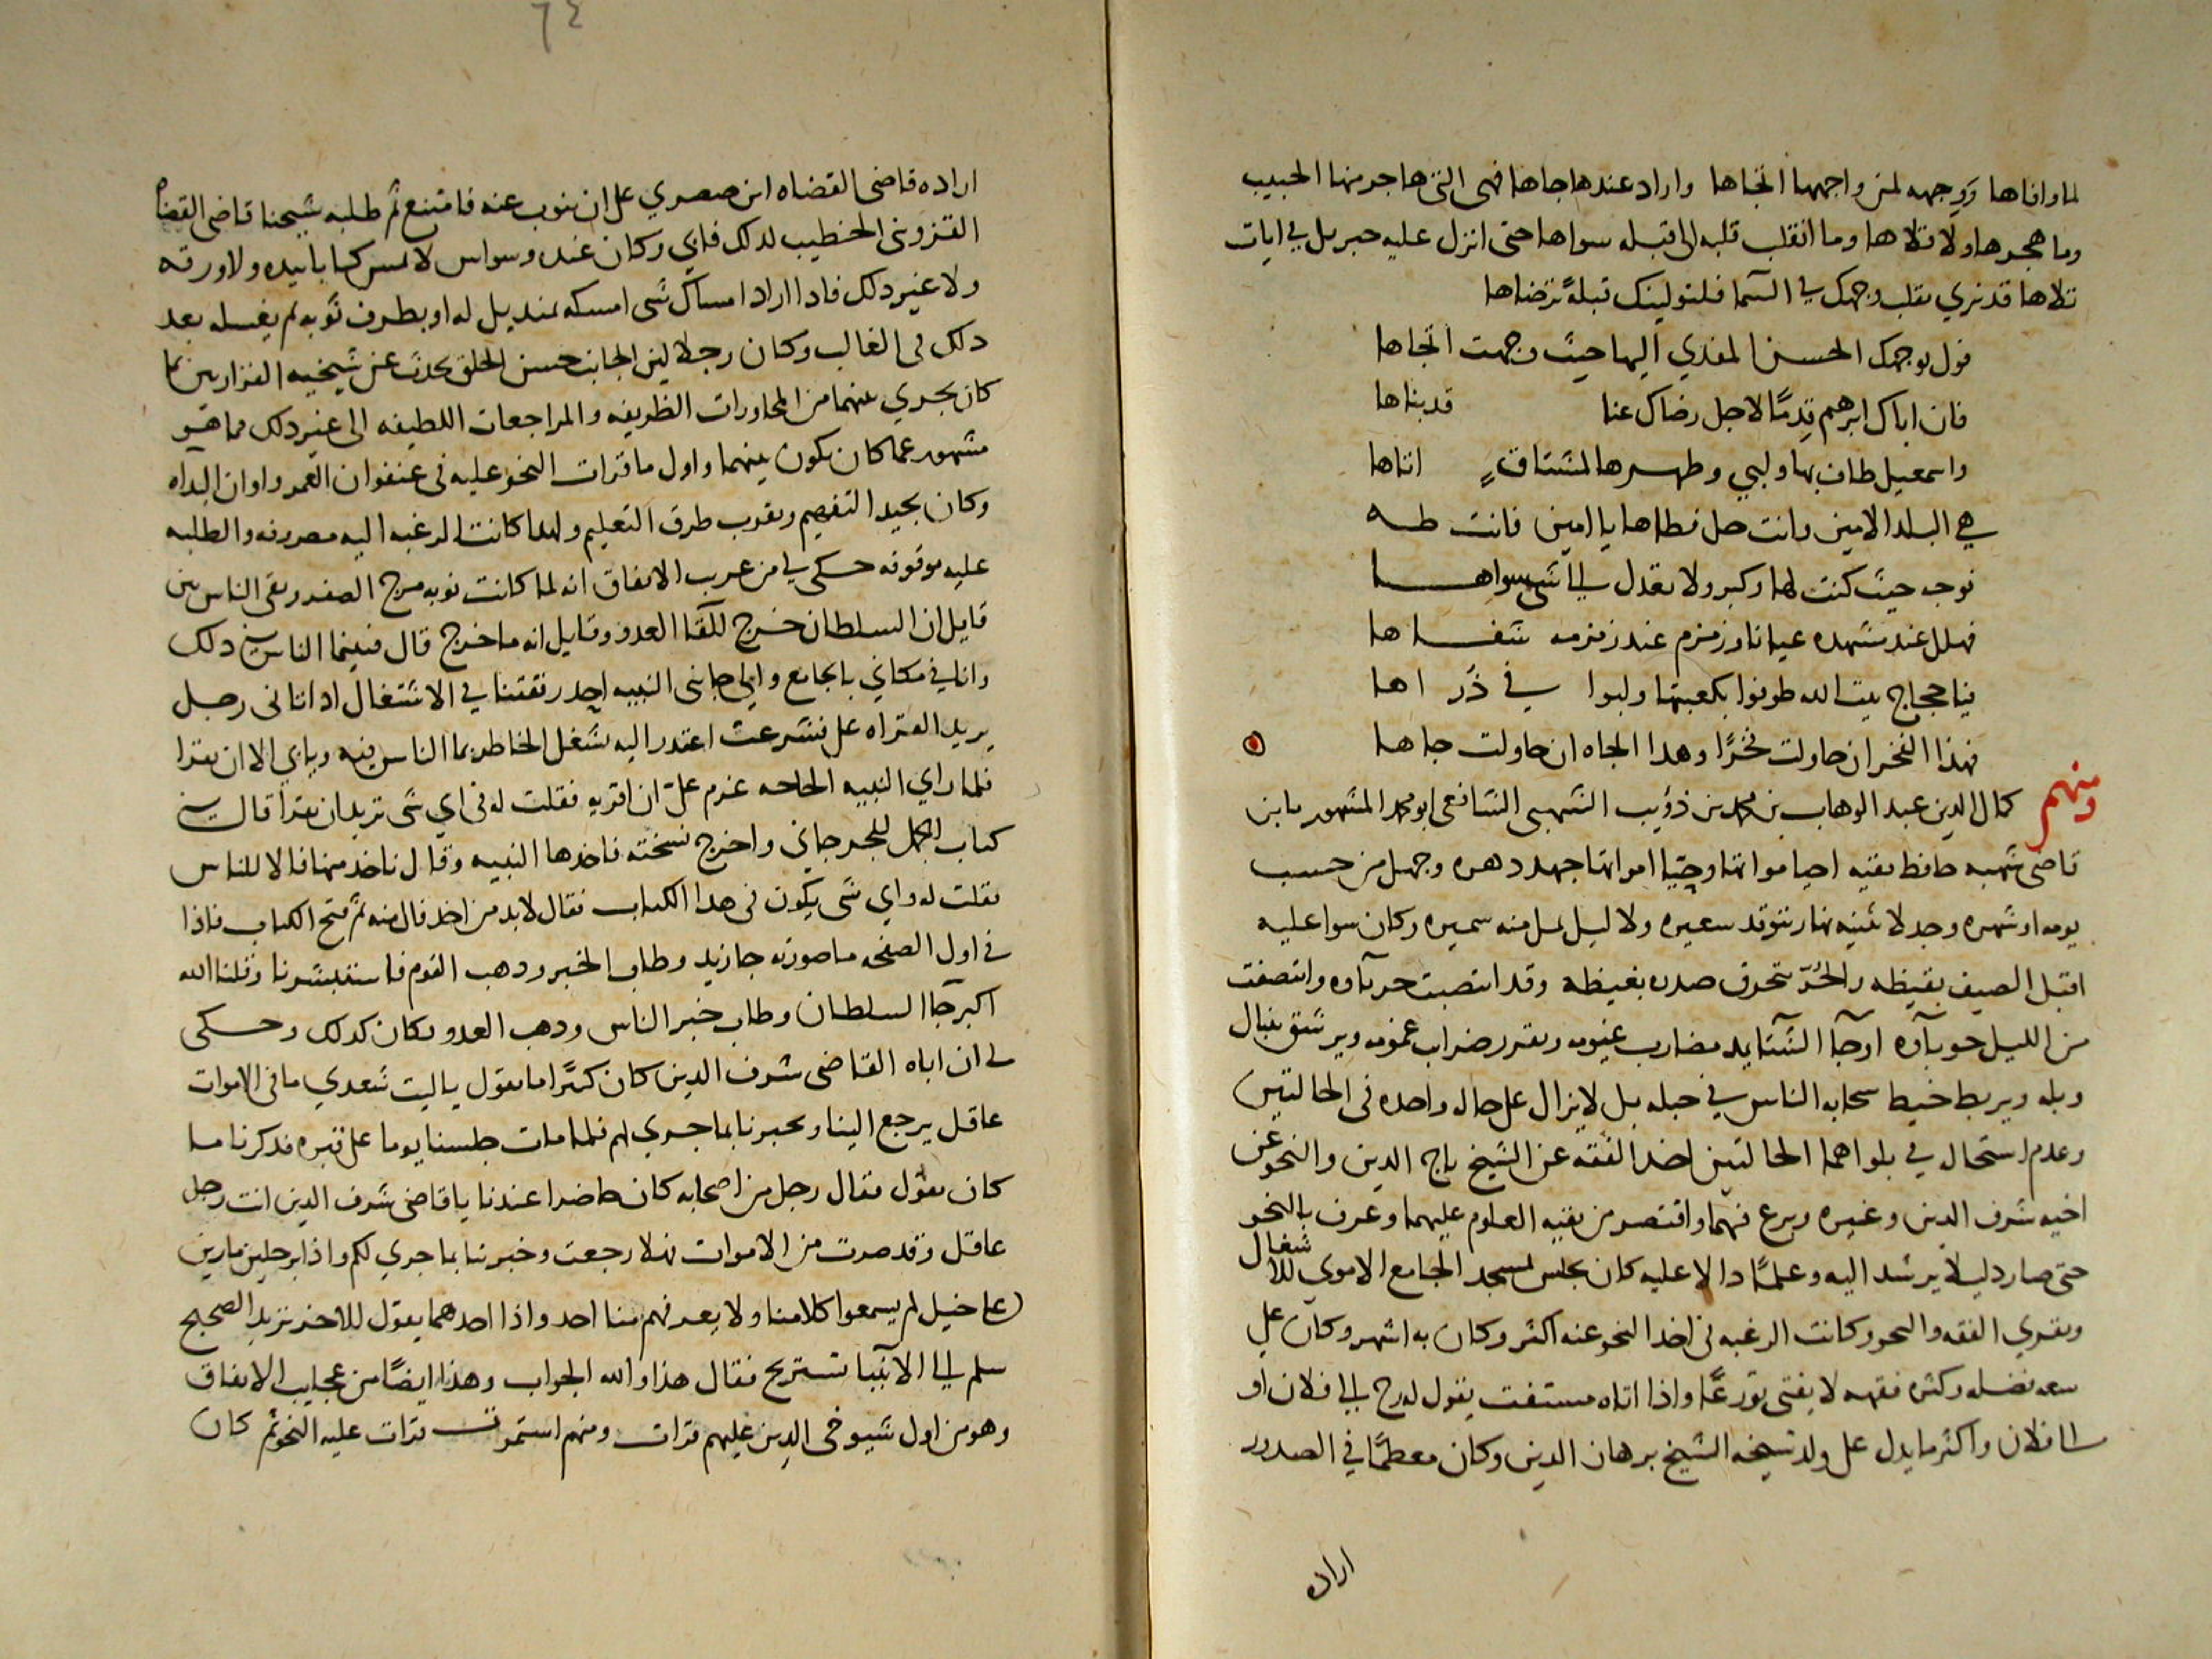 لما وافاها ووجهه لمن واجهها اتجاها واراد عندها جاها فهى التى هاجر منها الحبيب
وما هجرها ولا قلاها وما انقلب قلبه الى قبله سواها حتى انزل عليه جبريل في ايات
تلاها قد نري تقلب وجهك في السما فلنولينك قبلةً ترضاها
فول بوجهك الحسن المفدي اليها حيث وجهت اتجاها
فان اباك ابرهيم قدمًا لاجل رضاك عنا قد بناها
واسمعيل طاف بها ولبي وطهرها لمشتاقٍ اتاها
هي البلد الامين وانت حل فطاها يا امين فانت طه
توجه حيث كنت لها وكبر ولا تعدل الي شي سواها
فهلل عند مشهده عيانا وزمزم عند زمزمه شفاها
فيا حجاج بيت الله طوفوا بكعبتها ولبوا في ذراها
فهذا الفخر ان حاولت فخرًا وهدا الجاه ان حاولت جاها
ومنهم كمال الدين عبد الوهاب بن محمد بن ذؤيب الشهبى الشافعى ابو محمد المشهور بابن
قاضى شهبه حافظ بقيه احيا مواتها وحيّا امواتها جهد دهره وجهل من حسب
يومه او شهره وجد لا يثنيه نهار تتوقد سعيره ولا ليل يمل منه سميره وكان سوا عليه
اقبل الصيف بقيظه والحُرّ تحرق صدره بغيظه وقد انتصبت حرباوه وانتصفت
من الليل حوباوه او جا الشتا بد مضارب غيومه وتقرر ضراب غمومه ويرشق بنبال
وبله ويربط خيط سحابه الناس في حبله بل لا يزال على حاله واحده فى الحالتين
وعدم استحال في بلواهما الحالتين اخد الفقه عن الشيخ تاج الدين والنحو عن
اخيه شرف الدين وغيره وبرع فيهما واقتصر من بقيه العلوم عليهما وعرف بالنحو
حتى صار دليلا يرشد اليه وعلمًا دالا عليه كان يجلس لمسجد الجامع الاموي للاشغال
ويقري الفقه والنحو وكانت الرغبه فى اخد النحو عنه اكثر وكان به اشهر وكان على
سعه فضله وكثره فقهه لا يفتى تورعًا واذا اتاه مستفت يقول له رح الي فلان او
الى فلان واكثر ما يدل على ولد شيخه الشيخ برهان الدين وكان معظمًا في الصدور
اراده
٦٤
اراده قاضى القضاه ابن صصري على ان ينوب عنه فامتنع ثم طلبه شيخنا قاضى القضاه
القزوينى الخطيب لدلك فابي وكان عنده وسواس لا يمس كتابا بيده ولا ورقه
ولا غير دلك فادا اراد امساك شى امسكه بمنديل له او بطرف ثوبه ثم يغسله بعد
دلك فى الغالب وكان رجلا لين الجانب حسن الخلق يحدث عن شيخيه الفزاريين بما
كان يجري بينهما من المحاورات الظريفه والمراجعات اللطيفه الى غير دلك مما هو
مشهور عما كان يكون بينهما واول ما قرات النحو عليه فى عنفوان العمر واوان البداه
وكان يجيد التفهيم ويقرب طرق التعليم ولهدا كانت الرغبه اليه مصروفه والطلبه
عليه موقوفه حكى لي من غرب الاتفاق انه لما كانت نوبه مرج الصفر وبقى الناس بين
قايل ان السلطان خرج للقا العدو وقايل انه ما خرج قال فبينما الناس في دلك
وانا في مكاني بالجامع والي جانبى النبيه احد رفقتنا في الاشتغال اد اتانى رجل
يريد القراه على فشرعت اعتدر اليه بشغل الخاطر بما الناس فيه ويابي الا ان يقرا
فلما راي النبيه الحاحه عزم علىّ ان اقريه فقلت له فى اي شى تريد ان تقرا قال في
كتاب الجمل للجرجاني واخرج نسخته فاخدها النبيه وقال ناخد منها فالا للناس
فقلت له واي شى يكون فى هدا الكتاب فقال لابد من اخد فال منه ثم فتح الكتاب فاذا
في اول الصفحه ما صورته جا زيد وطاب الخبر ودهب القوم فاستبشرنا وقلنا الله
اكبر جا السلطان وطاب خبر الناس ودهب العدو فكان كدلك وحكى
لى ان اباه القاضى شرف الدين كان كثيرًا ما يقول يا ليت شعري ما فى الاموات
عاقل يرجع الينا ويخبرنا بما جري لهم فلما مات جلسنا يوما على قبره فدكرنا ما
كان يقول فقال رجل من اصحابه كان حاضرا عندنا يا قاضى شرف الدين انت رجل
عاقل وقد صرت من الاموات فهلا رجعت وخبرتنا بما جري لكم واذا برجلين مارين
على خيل لم يسمعوا كلامنا ولا يعرفهم منا احد واذا احدهما يقول للاخر تريد الصحيح
سلم الي الانبيا تستريح فقال هذا والله الجواب وهذا ايضًا من عجايب الاتفاق
وهو من اول شيوخى الدين عليهم قرات ومنهم استمررت قرات عليه النحو ثم كان